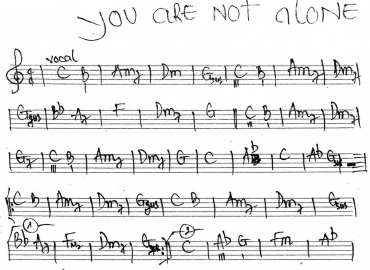 YOU ARE NOT ALONE
vocal
C B | Am7 | Dm | Gsus | C B | Am7 | Dm7 |
Gsus | Bb A7 | F | Dm7 | G | C B | Am7 | Dm7 |
G7 | C B | Am7 | Dm7 | G | C | Ab | C | Ab
C B | Am7 | Dm7 | Gsus | C B | Am7 | Dm7 | Gsus
1 2
Bb A7 | Fm7 | Dm7 | C | Ab G | Fm | Ab